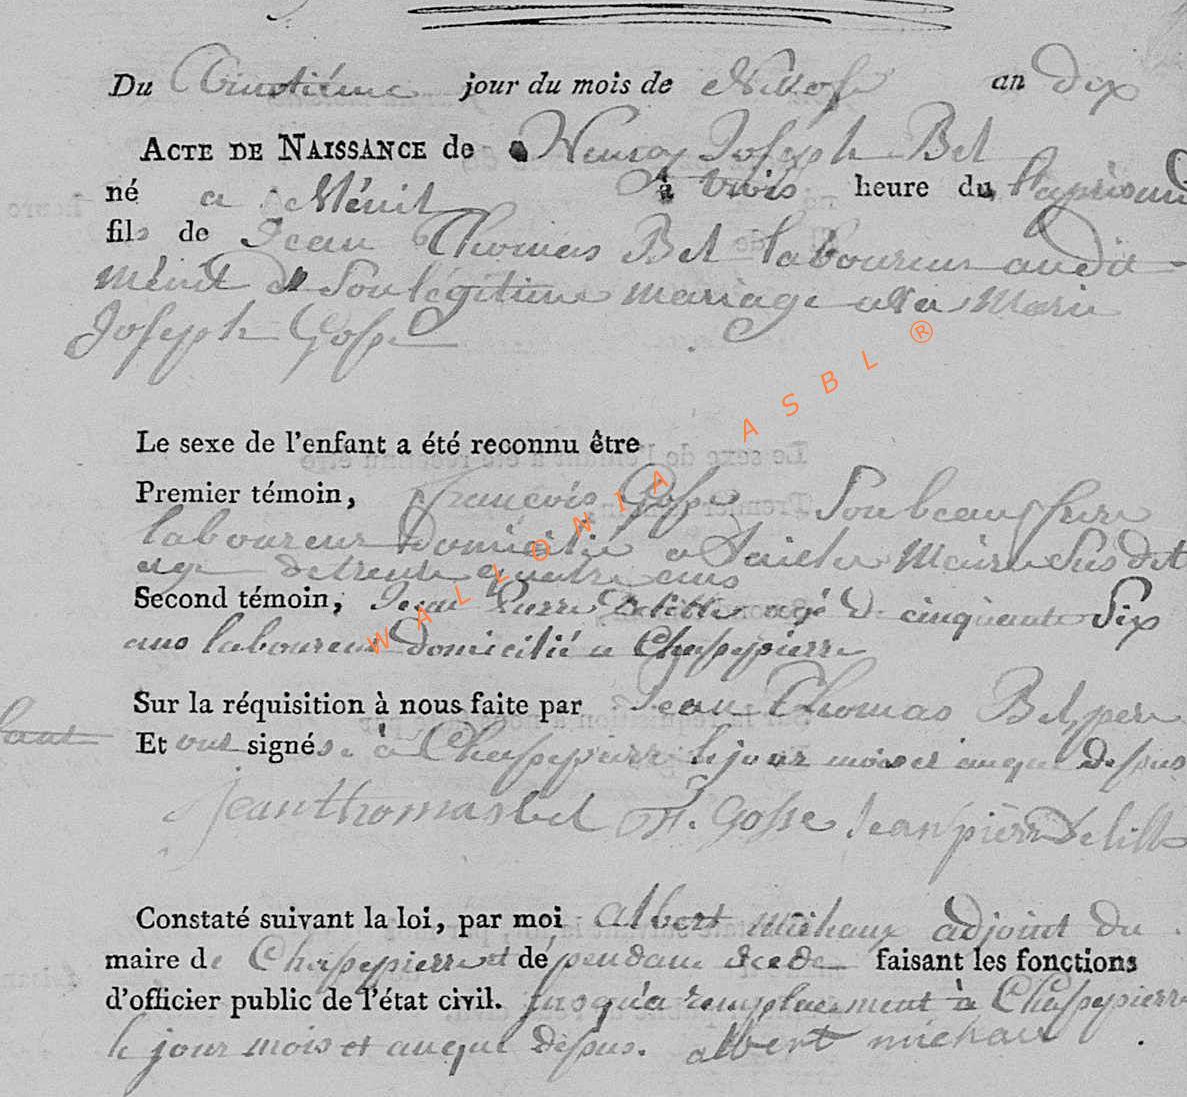 Du Vingtiéme jour du mois de Nivose an dix
ACTE DE NAISSANCE de Henry Joseph Bel
né a Ménil à trois heure du l'apris
fils de Jean Thomas Bel laboureur audit
ménil Son légitime mariage avec Marie
Joseph Gosse
Le sexe de l'enfant a été reconnu être
Premier témoin, françois Gosse Son beau frere
laboureur Domicilié a Susdit
age de trente quatre ans
Second témoin, Jean Pierre Delille agé De cinquante Six
ans laboureur domicilié a Chassepierre
Sur la réquisition à nous faite par Jean Thomas Bel pere
Et ont signés à Chassepierre le jour mois et an que dessus
Jean thomas bel F. Gosse Jean pierre Delille
Constaté suivant la loi, par moi albert michaux adjoint du
maire de Chassepierre et dépendance faisant les fonctions
d'officier public de l'état civil. jusqu'a remplacement à Chassepierre
le jour mois et an que dessus. albert michaux
WALLONIA ASBL ®